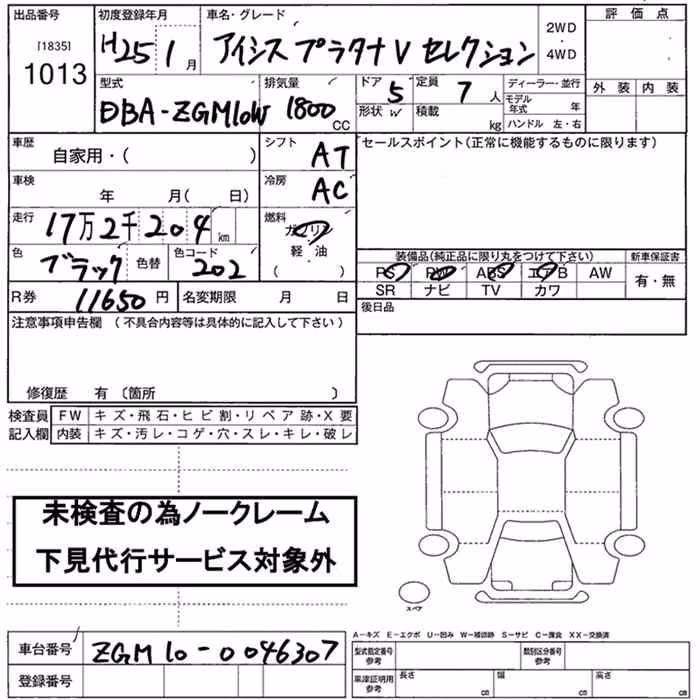 出品番号 初度登録年月 車名・グレード 2WD ・ 4WD 評価点
[1835] 1013 H25 1月 アイシス プラタナ V セレクション 外装 内装
型式 排気量 ドア 5 定員 7人 ディーラー・並行
DBA-ZGM10W 1800CC 形状 W 積載 kg モデル年式 年
ハンドル 左・右
車歴 自家用・( ) シフト AT セールスポイント(正常に機能するものに限ります)
車検 年 月( 日) 冷房 AC
走行 17万2千204km 燃料 ガソリン
軽油
( )
色 ブラック 色替 色コード 202
装備品(純正品に限り丸をつけて下さい) 新車保証書
PS PW ABS エアB AW 有・無
SR ナビ TV カワ
R券 11650円 名変期限 月 日 後日品
注意事項申告欄 (不具合内容等は具体的に記入して下さい)
修復歴 有 〔箇所 〕
検査員 FW キズ・飛石・ヒビ割・リペア跡・X要
記入欄 内装 キズ・汚レ・コゲ・穴・スレ・キレ・破レ
未検査の為ノークレーム
下見代行サービス対象外
スペア
A-キズ E-エクボ U-凹み W-補修跡 S-サビ C-腐食 XX-交換済
車台番号 ZGM10-0046307 型式指定番号 参考 類別区分番号 参考
登録番号 車庫証明用 参考 長さ cm 幅 cm 高さ cm